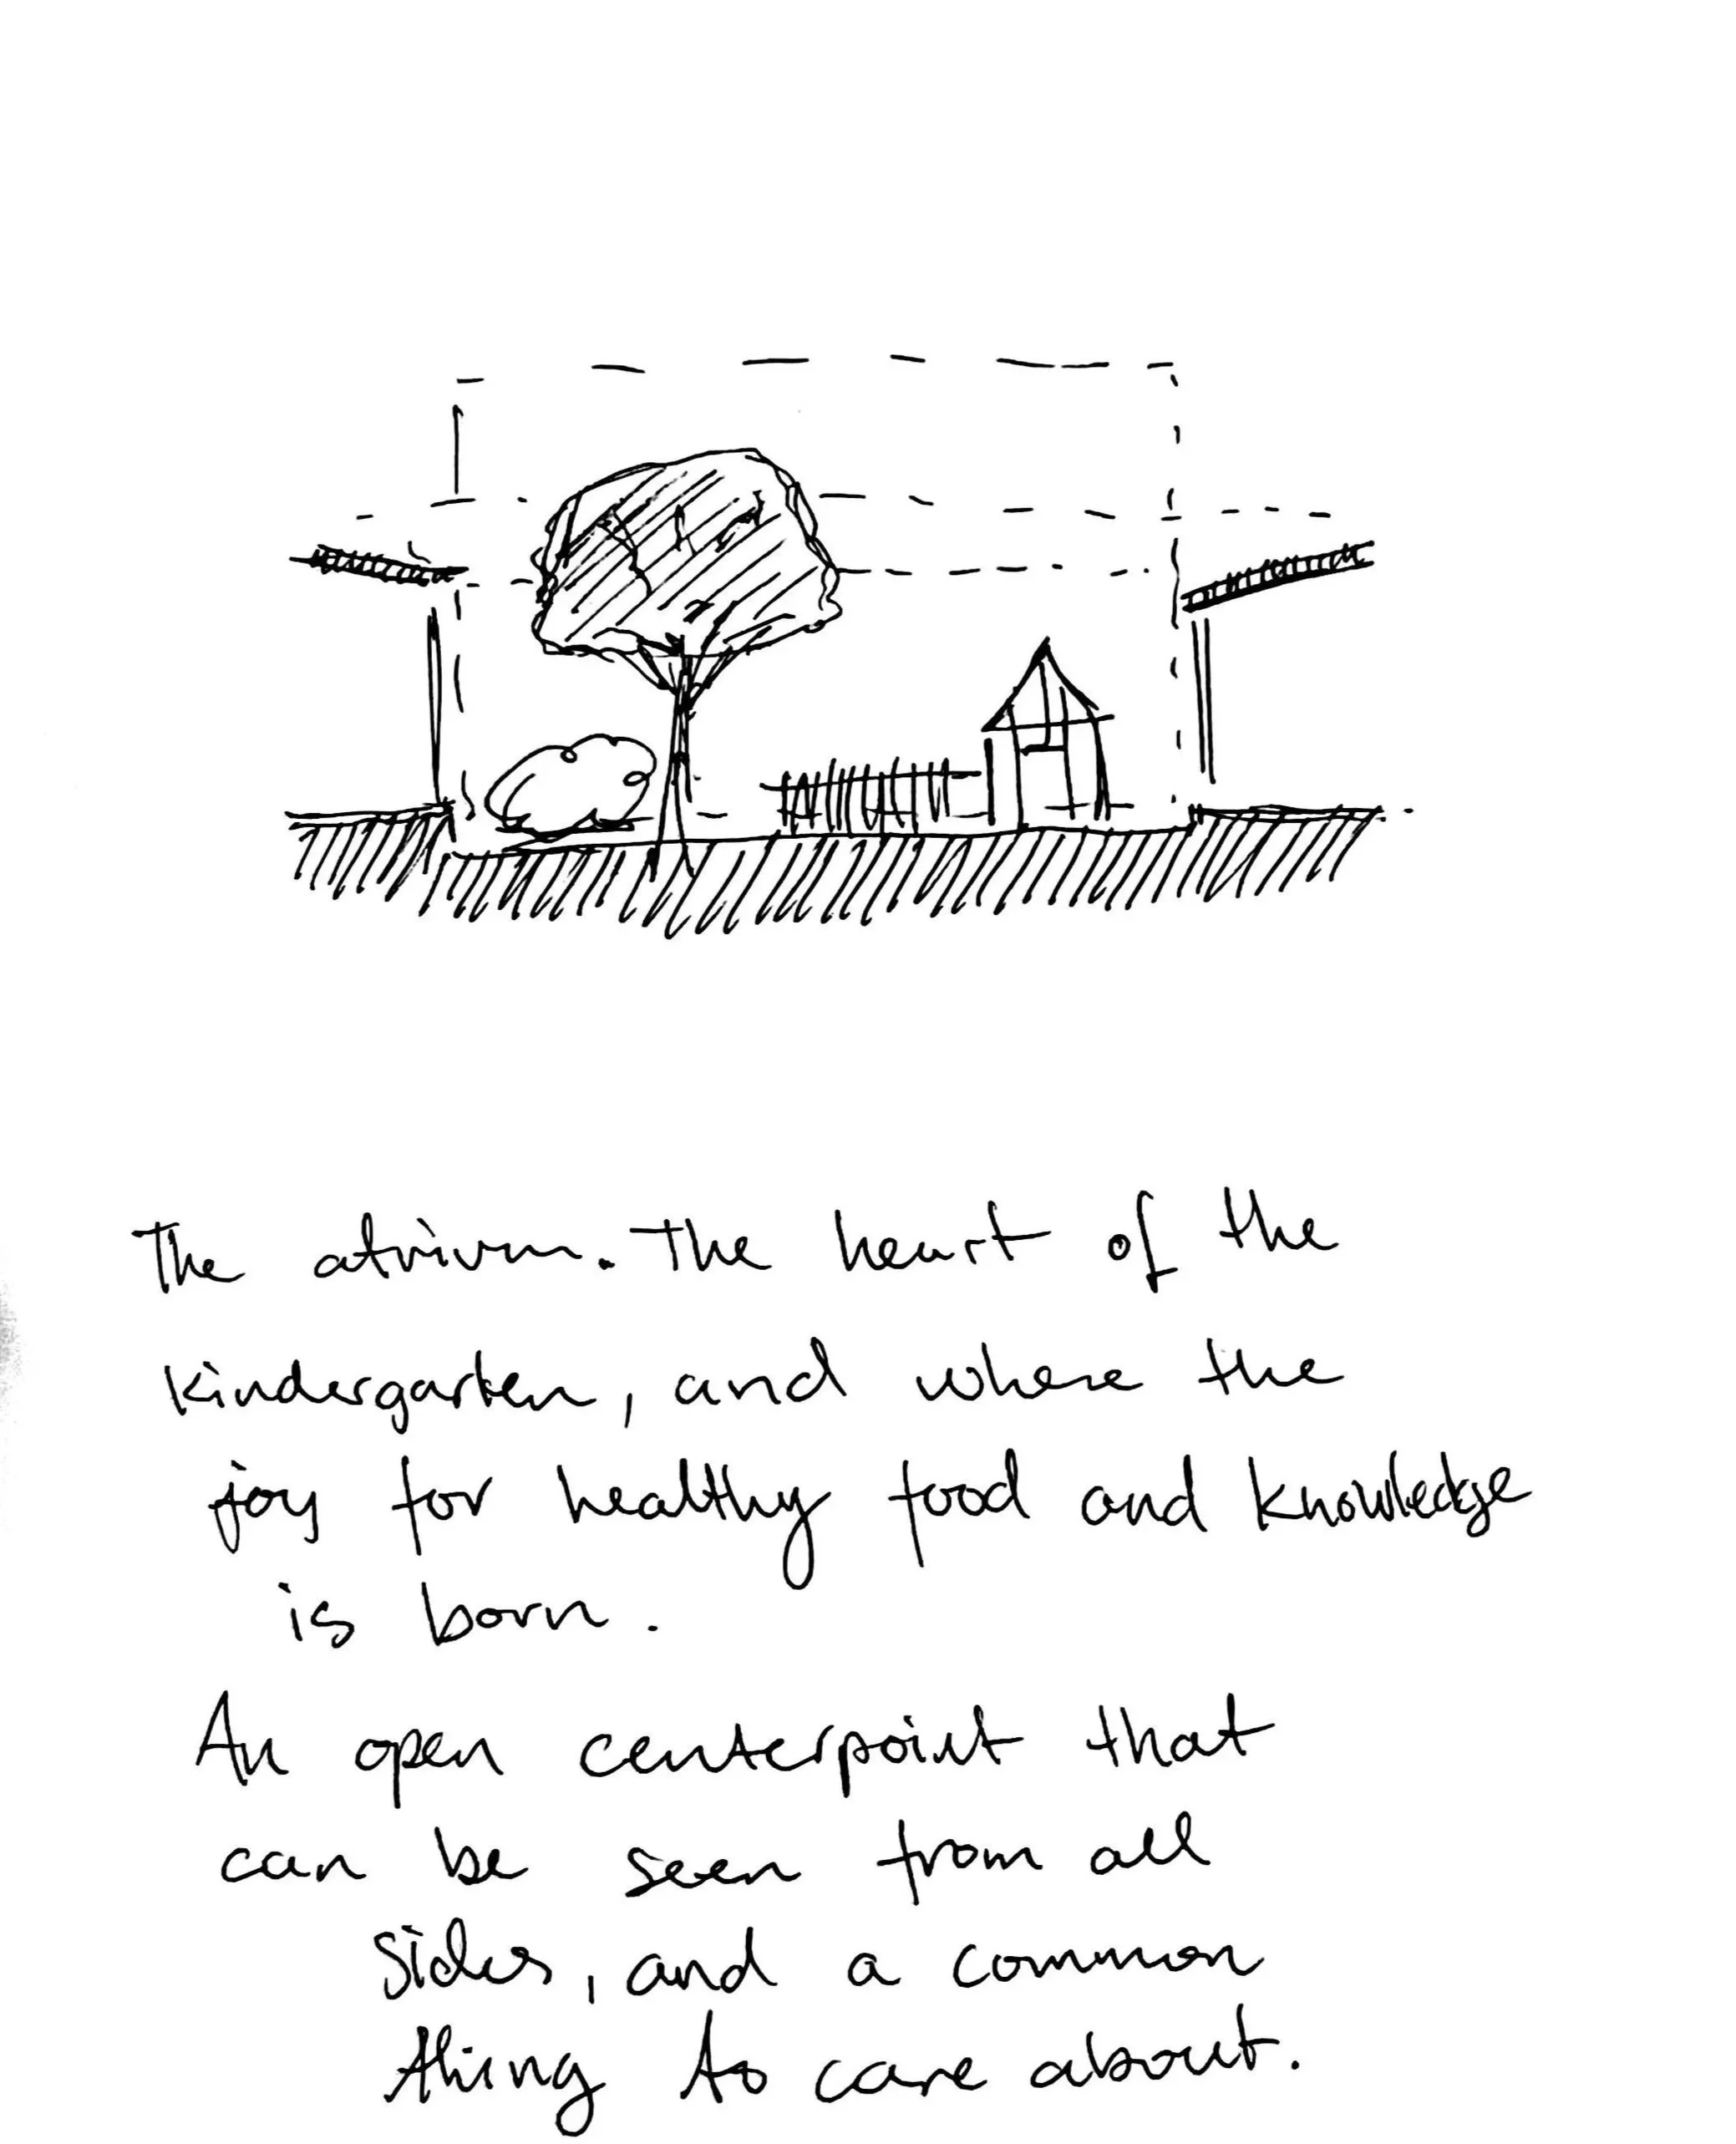 The atrium. The heart of the
kindergarten, and where the
joy for healthy food and knowledge
is born.
An open centerpoint that
can be seen from all
sides, and a common
thing to care about.